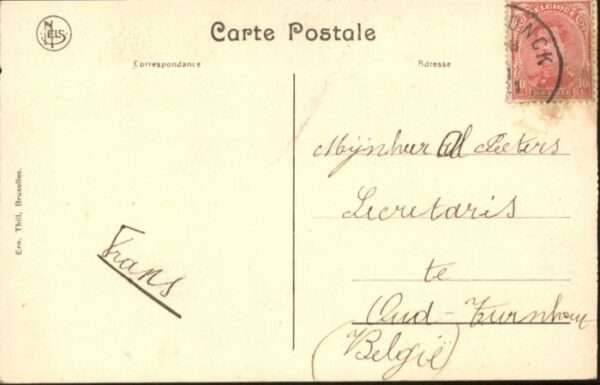 NELS
Carte Postale
Correspondance
Adresse
BELGIQUE
UNCK
10 10
Ern. Thill, Bruxelles.
Frans
Mijnheer Al Peeters
Secretaris
te
Oud-Turnhout
(België)